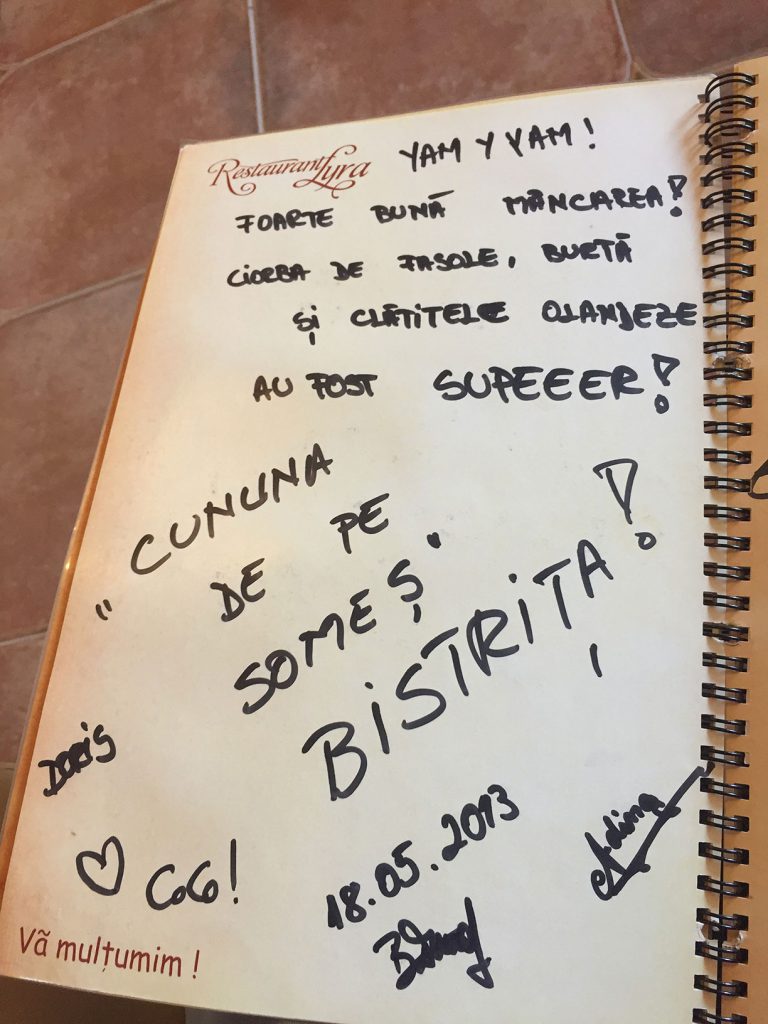 Restaurant Lyra
YAM Y YAM!
FOARTE BUNĂ MÂNCAREA!
CIORBA DE FASOLE, BURTĂ
ȘI CLĂTITELE OLANDEZE
AU FOST SUPEEER!
„CUNUNA
DE PE
SOMEȘ"
BISTRIȚA!
DORIS
♡ CoCo!
18.05.2013
Adina
Vã mulțumim !